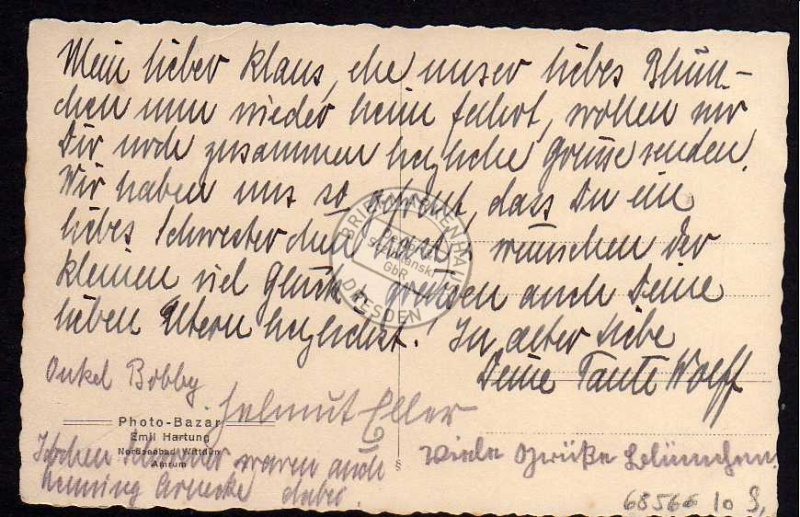 Mein lieber Klaus, ehe unser liebes Blüm-
chen nun wieder heim fährt, wollen wir
Dir noch zusammen herzliche Grüsse senden.
Wir haben uns so gefreut, dass Du ein
liebes Schwesterchen hast, wünschen der
kleinen viel Glück, grüssen auch Deine
lieben Eltern herzlichst! In alter Liebe
Deine Tante Wolff
Onkel Bobby
Helmut Eller
Photo-Bazar
Emil Hartung
Nordseebad Wittdün
Amrum
Jochen waren auch
Henning dabei.
Viele Grüße Blümchen.
68566 10 S,
BRIEFMARKENHAUS
GbR
DRESDEN